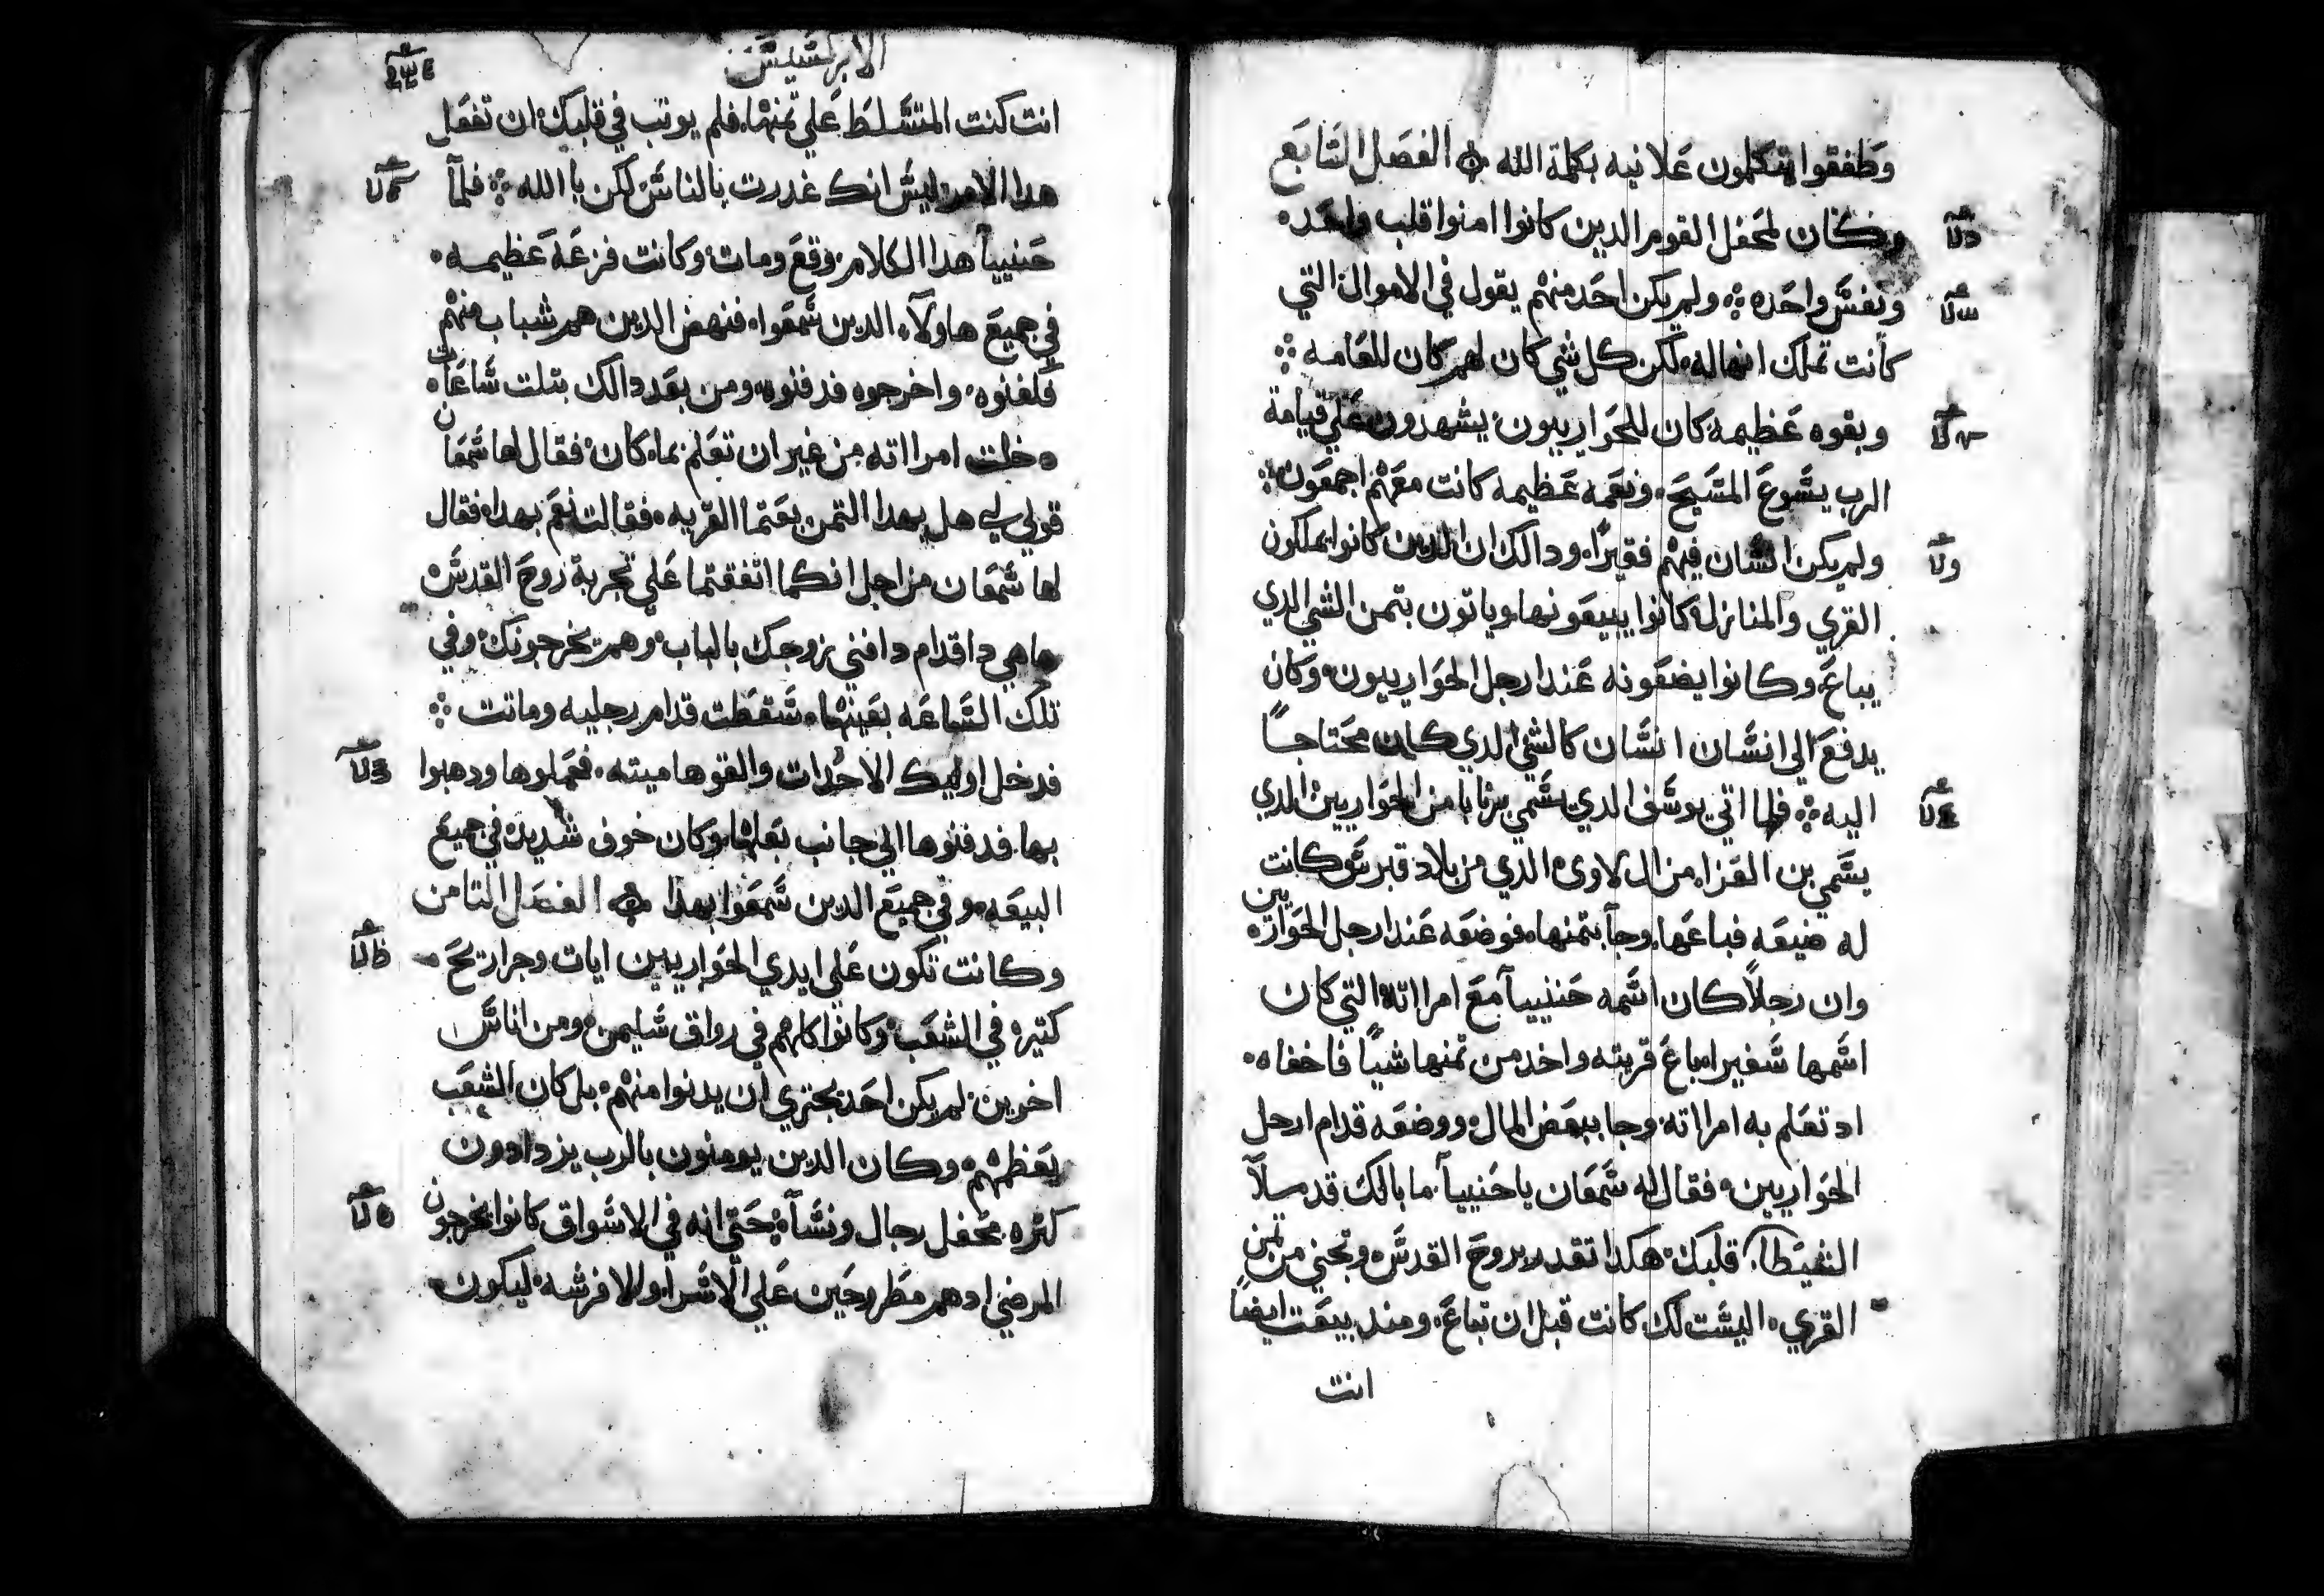 وطفقوا يتكلمون علانيه بكلمة الله الفصل السابع
وكان لمحفل القوم الدين كانوا امنوا قلب واحده
ونفس واحده ولم يكن احد منهم يقول في الاموال التي
كانت تملك انها له لكن كل شي كان لهم كان للعامه
وبقوه عظيمه كان للحواريون يشهدون علي قيامة
الرب يشوع المسيح ونعمه عظيمه كانت معهم اجمعون
ولم يكن انسان فيهم فقيرا ودالك ان الدين كانوا يملكون
القري والمنازل كانوا يبيعونها وياتون بتمن الشي الدي
يباع وكانوا يضعونه عند ارجل الحواريون وكان
يدفع الي انسان انسان كالشي الدي كان محتاجا
اليه فلما اتي يوسف الدي يسمي برنابا من الحواريين الدي
يسمي بن العزا من ال لاوي الدي من بلاد قبرس كانت
له ضيعه فباعها وجا بتمنها فوضعه عند ارجل الحواريين
وان رجلا كان اسمه حننييا مع امرااته التي كان
اسمها سفيرا باع قريته واخد من تمنها شيا فاخفاه
اد تعلم به امرااته وجا ببعض المال ووضعه قدام ارجل
الحواريين فقال له شمعان يا حننييا ما بالك قد ملا
الشيطان قلبك هكدا تغدر بروح القدس وتخبي من تمن
القري اليست لك كانت قبل ان تباع ومند بيعت ايضا
انت
الابركسيس
انت كنت المتسلط علي تمنها فلم يوتب في قلبك ان تفعل
هدا الامر ليس انك غدرت بالناس لكن با الله فلما
حننييا هدا الكلام وقع ومات وكانت فزعه عظيمه
في جميع هاولاء الدين سمعوا فنهض الدين هم شباب منهم
فكفنوه واخرجوه فدفنوه ومن بعد دالك بتلت ساعات
دخلت امرااته من غير ان تعلم بما كان فقال لها شمعان
قولي لي هل بهدا التمن بعتما القريه فقالت نعم بهدا فقال
لها شمعان من اجل انكما اتفقتما علي تجربة روح القدس
ها هي دا اقدام دافني زوجك بالباب وهم يخرجونك وفي
تلك الساعه بعينها سقطت قدام رجليه وماتت
فدخل اوليك الاحدات والقوها ميته فحملوها ودهبوا
بها فدفنوها الي جانب بعلها وكان خوف شديد في جميع
البيعه وفي جميع الدين سمعوا بهدا الفصل التامن
وكانت تكون علي ايدي الحواريين ايات وجرايح
كتيره في الشعب وكانوا كلهم في رواق سليمن ومن اناس
اخرين لم يكن احد يجتري ان يدنوا منهم بل كان الشعب
يعظمهم وكان الدين يومنون بالرب يزدادون
كتره محفل رجال ونسا حتي انه في الاسواق كانوا يخرجون
المرضي ادهم مطروحين علي الاسرا والافرشه ليكون